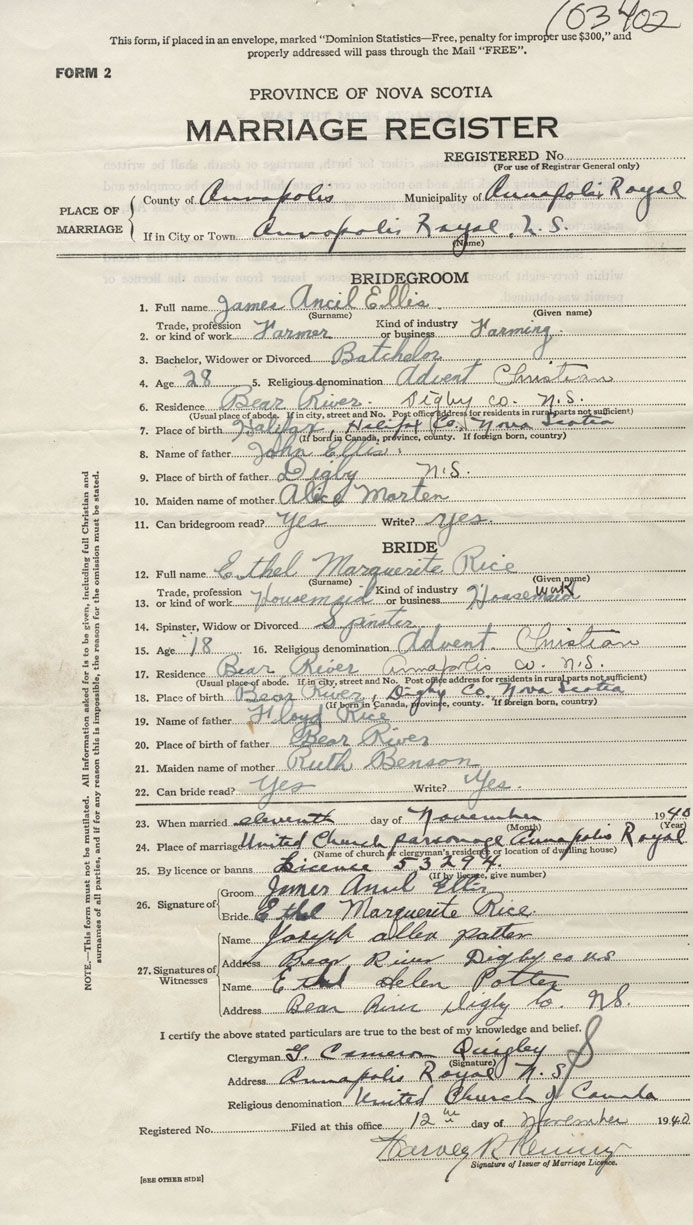 103402
This form, if placed in an envelope, marked "Dominion Statistics—Free, penalty for improper use $300," and
properly addressed will pass through the Mail "FREE".
FORM 2
PROVINCE OF NOVA SCOTIA
MARRIAGE REGISTER
REGISTERED No.
(For use of Registrar General only)
PLACE OF MARRIAGE
County of Annapolis Municipality of Annapolis Royal
If in City or Town Annapolis Royal, N.S.
(Name)
BRIDEGROOM
1. Full name James Ancil Ellis
(Surname) (Given name)
2. Trade, profession or kind of work Farmer Kind of industry or business Farming
3. Bachelor, Widower or Divorced Batchelor
4. Age 28 5. Religious denomination Advent Christian
6. Residence Bear River. Digby co. N.S.
(Usual place of abode. If in city, street and No. Post office address for residents in rural parts not sufficient)
7. Place of birth Halifax, Halifax Co., Nova Scotia
(If born in Canada, province, county. If foreign born, country)
8. Name of father John Ellis
9. Place of birth of father Digby N.S.
10. Maiden name of mother Alice Marten
11. Can bridegroom read? Yes Write? yes.
BRIDE
12. Full name Ethel Marguerite Rice
(Surname) (Given name)
13. Trade, profession or kind of work Housemaid Kind of industry or business House work
14. Spinster, Widow or Divorced Spinster
15. Age 18 16. Religious denomination Advent Christian
17. Residence Bear River Annapolis co. N.S.
(Usual place of abode. If in city, street and No. Post office address for residents in rural parts not sufficient)
18. Place of birth Bear River, Digby Co., Nova Scotia
(If born in Canada, province, county. If foreign born, country)
19. Name of father Floyd Rice
20. Place of birth of father Bear River
21. Maiden name of mother Ruth Benson
22. Can bride read? Yes Write? Yes.
23. When married eleventh day of November 1940
(Month) (Year)
24. Place of marriage United Church parsonage Annapolis Royal
(Name of church or clergyman's residence or location of dwelling house)
25. By licence or banns Licence 53294.
(If by licence, give number)
26. Signature of
Groom James Ancil Ellis
Bride Ethel Marguerite Rice
27. Signatures of Witnesses
Name Joseph allen potter
Address Bear River Digby co NS
Name Ethel Helen Potter
Address Bear River Digby Co. NS.
I certify the above stated particulars are true to the best of my knowledge and belief.
Clergyman G. Cameron Quigley
(Signature)
Address Annapolis Royal N.S.
Religious denomination United Church of Canada
Registered No. Filed at this office 12th day of November 1940
Harvey R
Signature of Issuer of Marriage Licence.
[SEE OTHER SIDE]
NOTE.—This form must not be mutilated. All information asked for is to be given, including full Christian and
surnames of all parties, and if for any reason this is impossible, the reason for the omission must be stated.